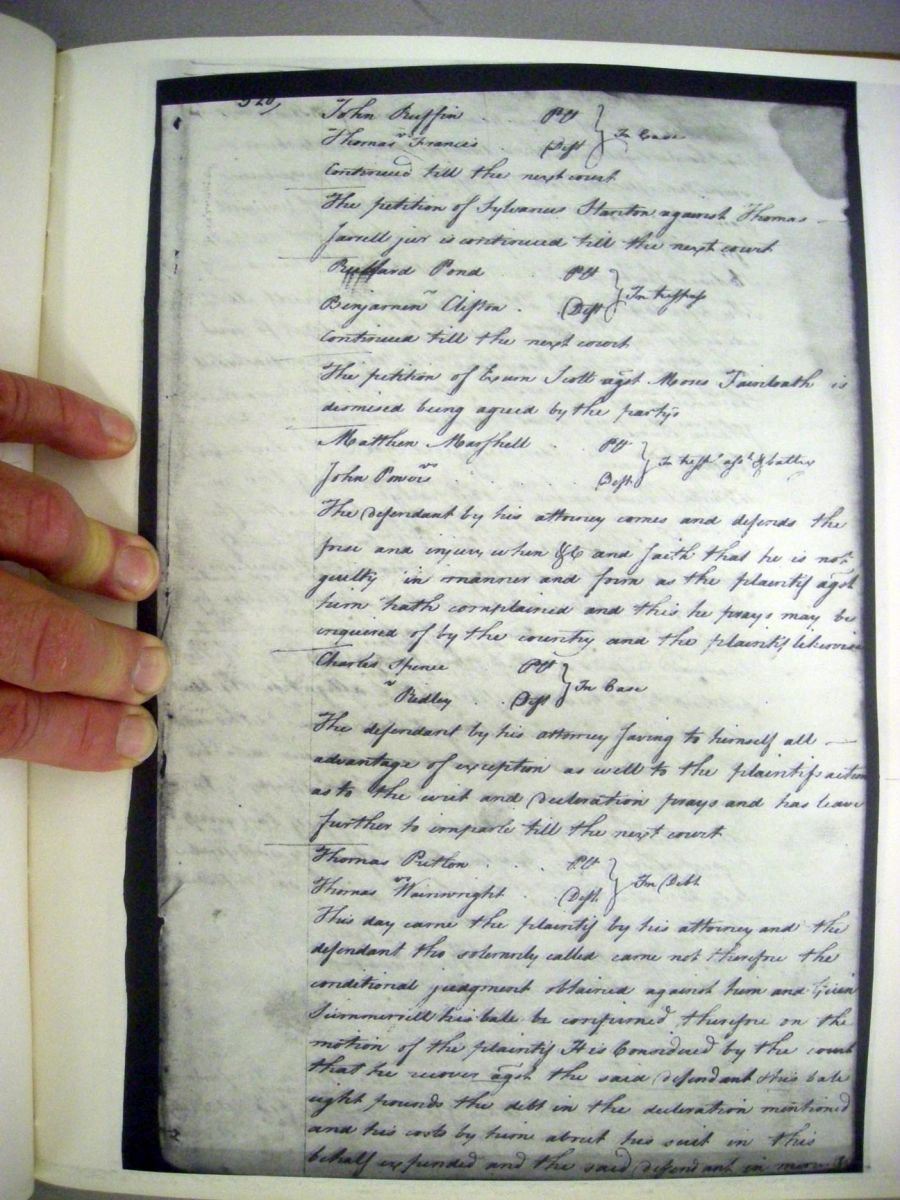 John Ruffin Plt } In Case
vs
Thomas Francis Deft
Continued till the next court
The petition of Sylvanus Stanton against Thomas
Jarrell jur is continued till the next court
Pond Plt } In trespass
vs
Benjamen Clifton Deft
Continued till the next court
The petition of Exum Scott agst Moses Fairloath is
dismised being agreed by the partys
Matthew Marshell Plt } In tresps asst & battry
vs
John Power Deft
The defendant by his attorney comes and defends the
forse and injury when &C and saith that he is not
guilty in manner and form as the plaintif agst
him hath complained and this he prays may be
inquired of by the country and the plaintif likewise
Charles Spence Plt } In Case
vs
Ridley Deft
The defendant by his attorney saving to himself all
advantage of exception as well to the plaintifs action
as to the writ and declaration prays and has leave
further to imparle till the next court
Thomas Plt } In Debt
vs
Thomas Wainwright Deft
This day came the plaintif by his attorney and the
defendant tho solemnly called came not therefore the
conditional judgment obtained against him and
his bale be confirmed, therefore on the
motion of the plaintif It is Considered by the court
that he recover agst the said defendant & his bale
eight pounds the debt in the decleration mentioned
and his costs by him about his suit in this
behalf expended and the said defendant in mercy &c